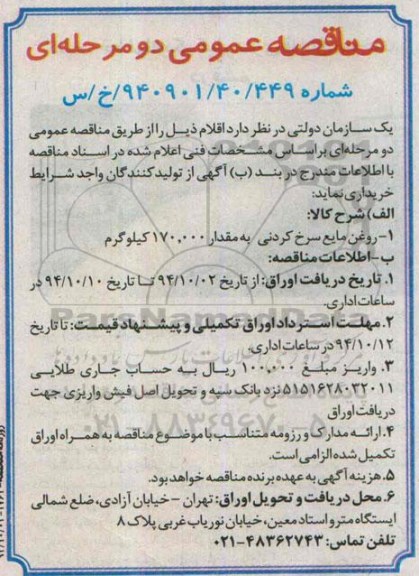 مناقصه عمومی دو مرحله‌ای
شماره ۹۴۰۹۰۱/۴۰/۴۴۹/خ/س
یک سازمان دولتی در نظر دارد اقلام ذیل را از طریق مناقصه عمومی
دو مرحله‌ای براساس مشخصات فنی اعلام شده در اسناد مناقصه
با اطلاعات مندرج در بند (ب) آگهی از تولیدکنندگان واجد شرایط
خریداری نماید:
الف) شرح کالا:
۱- روغن مایع سرخ کردنی به مقدار ۱۷۰,۰۰۰ کیلوگرم
ب- اطلاعات مناقصه:
۱. تاریخ دریافت اوراق: از تاریخ ۹۴/۱۰/۰۲ تا تاریخ ۹۴/۱۰/۱۰ در
ساعات اداری.
۲. مهلت استرداد اوراق تکمیلی و پیشنهاد قیمت: تا تاریخ
۹۴/۱۰/۱۲ در ساعات اداری.
۳. واریز مبلغ ۱۰۰,۰۰۰ ریال به حساب جاری طلایی
۵۱۵۱۶۲۸۰۳۲۰۱۱ نزد بانک سپه و تحویل اصل فیش واریزی جهت
دریافت اوراق
۴. ارائه مدارک و رزومه متناسب با موضوع مناقصه به همراه اوراق
تکمیل شده الزامی است.
۵. هزینه آگهی به عهده برنده مناقصه خواهد بود.
۶. محل دریافت و تحویل اوراق: تهران - خیابان آزادی، ضلع شمالی
ایستگاه مترو استاد معین، خیابان نوریاب غربی پلاک ۸
تلفن تماس: ۴۸۳۶۲۷۴۳-۰۲۱
ParsNamadData
۰۲۱-۸۸۳۴۹۶۷۰-۵